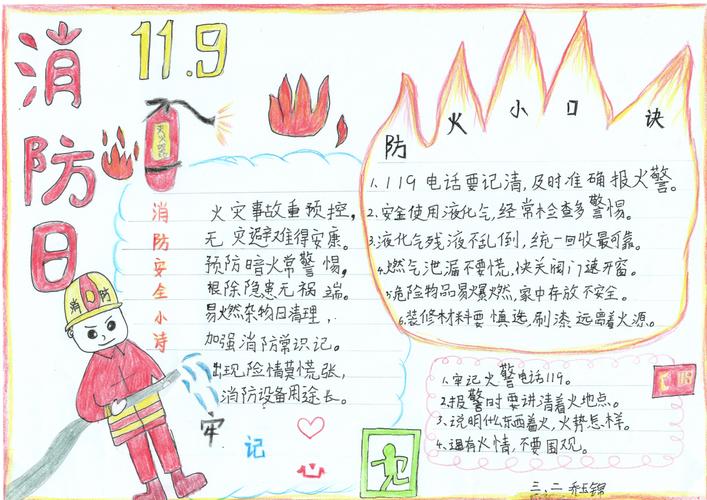 消防日
11.9
灭火器
消防
消防安全小诗
火灾事故重预控,
无灾避难得安康。
预防暗火常警惕,
根除隐患无祸端。
易燃杂物日清理,
加强消防常识记。
出现险情莫慌张,
消防设备用途长。
牢记
防火小口诀
1.119电话要记清,及时准确报火警。
2.安全使用液化气,经常检查多警惕。
3.液化气残液不乱倒,统一回收最可靠。
4.燃气泄漏不要慌,快关阀门速开窗。
5.危险物品易爆燃,家中存放不安全。
6.装修材料要慎选,刷漆远离着火源。
1.牢记火警电话119。
2.报警时要讲清着火地点。
3.说明什么东西着火,火势怎样。
4.遇有火情,不要围观。
119
三、二